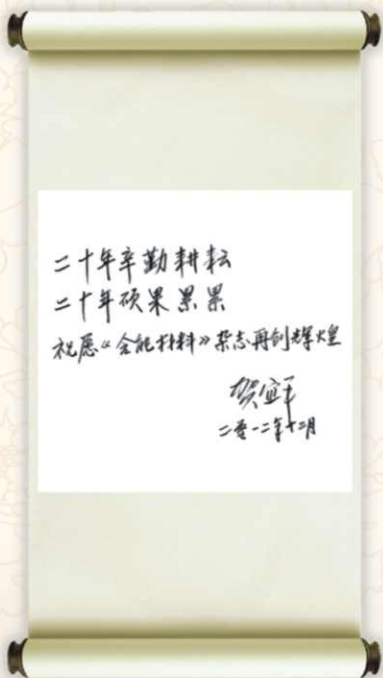 二十年辛勤耕耘
二十年硕果累累
祝愿《含能材料》杂志再创辉煌
贺宜平
二零一二年十二月